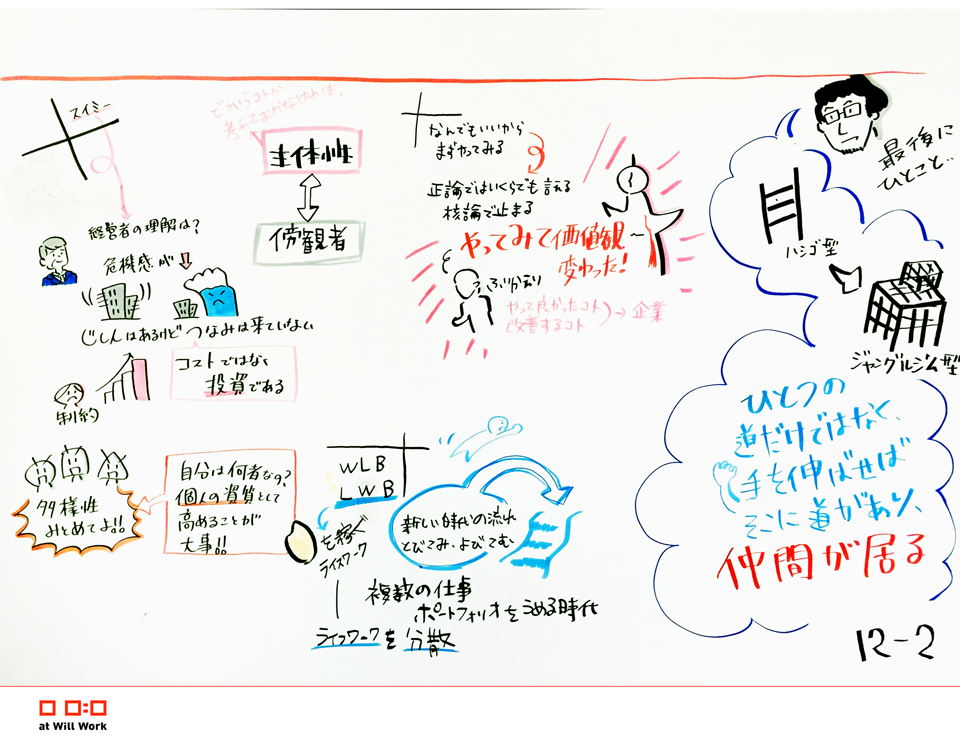 スイミー
どういうコトか
考えておかなければ。
主体性
傍観者
経営者の理解は?
危機感が
じしんはあるけどつなみは来ていない
コストではなく
投資である
制約
多様性
みとめてよ!!
自分は何者なの?
個人の資質として
高めることが
大事!!
なんでもいいから
まずやってみる
正論ではいくらでも言える
核論で止まる
やってみて価値観〜
変わった!
ふりかえり
やって良かったコト
改善するコト
→企業
WLB
LWB
を稼ぐ
ライスワーク
新しい時代の流れ
とびこみ、よびこむ
複数の仕事
ポートフォリオを うめる時代
ライフワークを分散
最後に
ひとこと…
ハシゴ型
ジャングルジム型
ひとつの
道だけではなく、
手を伸ばせば
そこに道があり、
仲間が居る
12-2
at Will Work